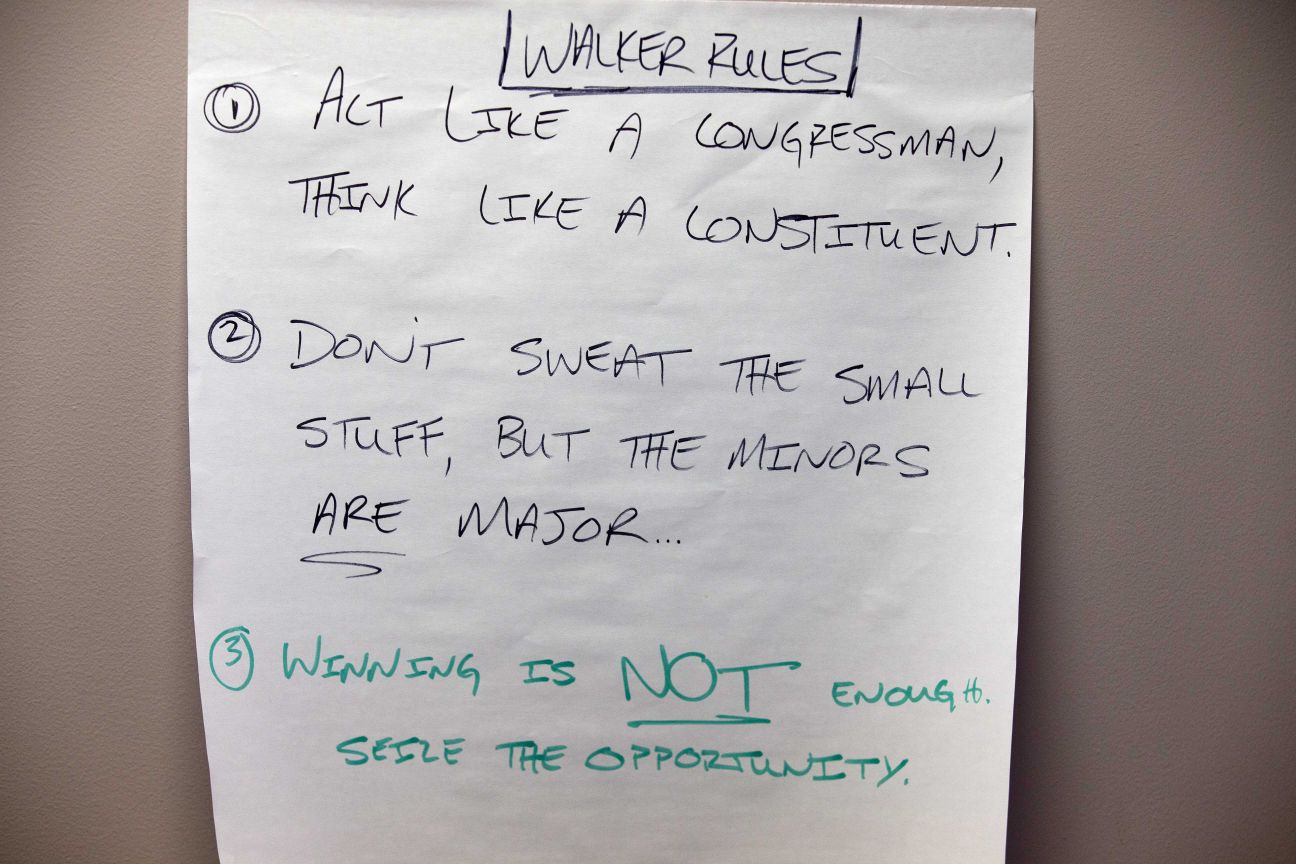 WALKER RULES
① ACT LIKE A CONGRESSMAN,
THINK LIKE A CONSTITUENT.
② DON'T SWEAT THE SMALL
STUFF, BUT THE MINORS
ARE MAJOR...
③ WINNING IS NOT ENOUGH.
SEIZE THE OPPORTUNITY.